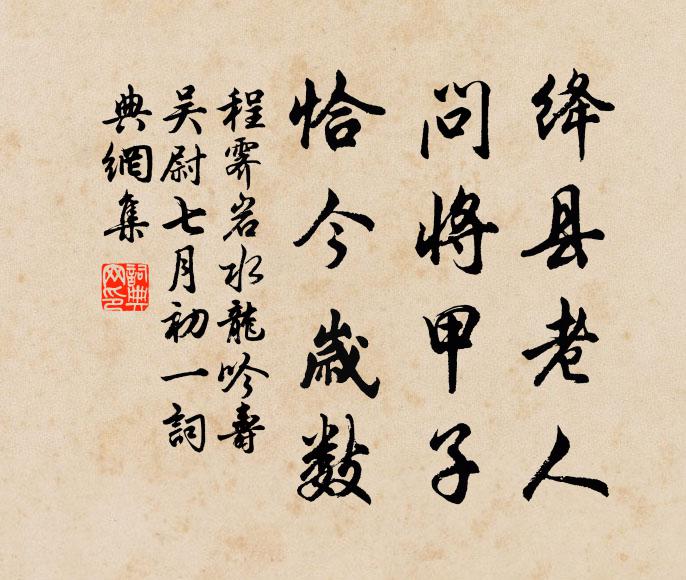 绛县老人
问将甲子
恰今岁数
程霁岩水龍吟壽
吴尉七月初一詞
典網集
詞典網印